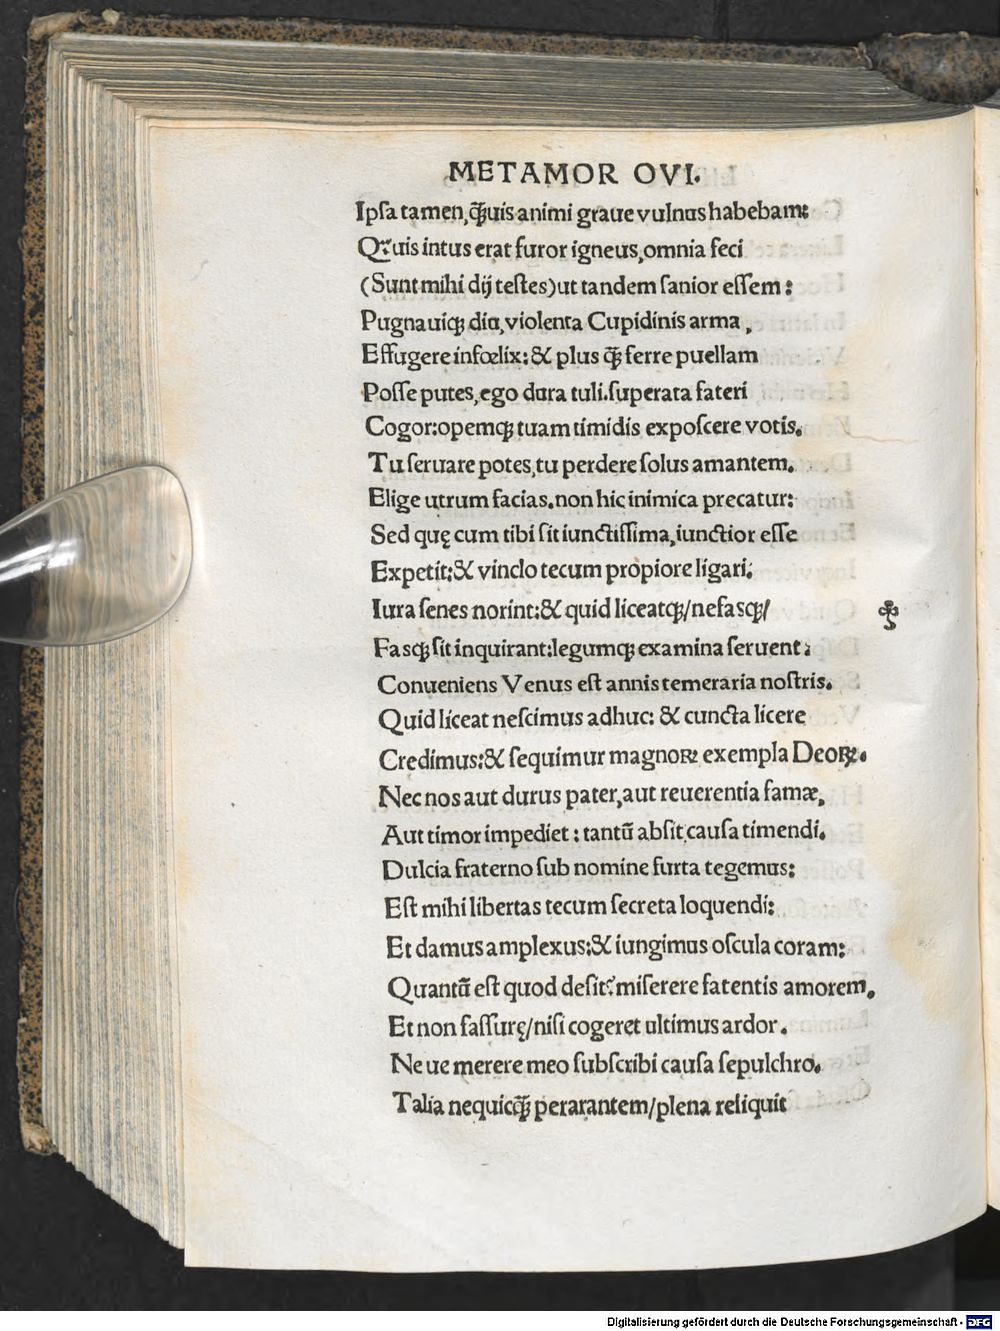 METAMOR OVI.
Ipſa tamen, ꝗ̃uis animi graue vulnus habebam:
Q̃uis intus erat furor igneus, omnia feci
(Sunt mihi dij teſtes) ut tandem ſanior eſſem:
Pugnauiqꝫ diu, violenta Cupidinis arma,
Effugere infœlix: & plus ꝗ̃ ferre puellam
Poſſe putes, ego dura tuli. ſuperata fateri
Cogor: opemqꝫ tuam timidis expoſcere votis.
Tu ſeruare potes, tu perdere ſolus amantem.
Elige utrum facias. non hic inimica precatur:
Sed quę cum tibi ſit iunctiſſima, iunctior eſſe
Expetit: & vinclo tecum propiore ligari:
Iura ſenes norint: & quid liceatqꝫ/nefasqꝫ/
Fasqꝫ ſit inquirant: legumqꝫ examina ſeruent:
Conueniens Venus eſt annis temeraria noſtris.
Quid liceat neſcimus adhuc: & cuncta licere
Credimus: & ſequimur magnoꝝ exempla Deoꝝ.
Nec nos aut durus pater, aut reuerentia famæ,
Aut timor impediet: tantũ abſit cauſa timendi.
Dulcia fraterno ſub nomine furta tegemus:
Eſt mihi libertas tecum ſecreta loquendi:
Et damus amplexus: & iungimus oſcula coram:
Quantũ eſt quod deſit? miſerere fatentis amorem.
Et non faſſurę/niſi cogeret ultimus ardor.
Neue merere meo ſubſcribi cauſa ſepulchro.
Talia nequicꝗ̃ perarantem/plena reliquit
Digitalisierung gefördert durch die Deutsche Forschungsgemeinschaft - DFG